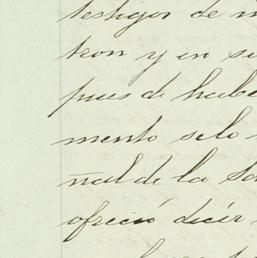 testigos de m
tron y en se
pues de habe
mento se lo
ñal de la Sa
ofreció decir